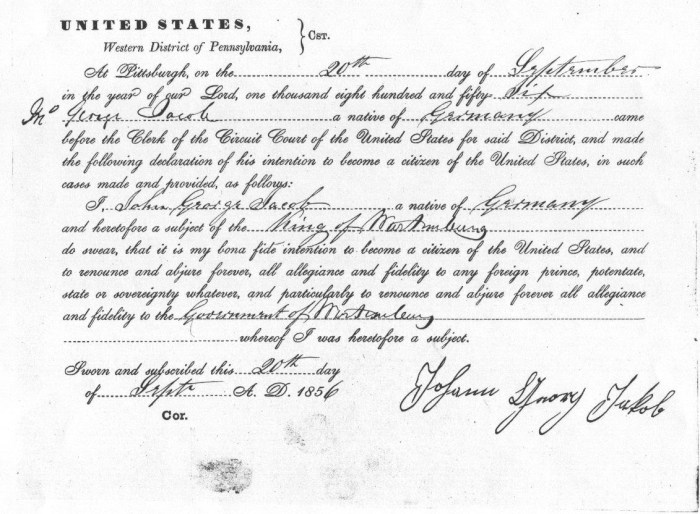 UNITED STATES,
Western District of Pennsylvania, } Cst.
At Pittsburgh, on the 20th day of September
in the year of our Lord, one thousand eight hundred and fifty six
Jno George Jacob a native of Germany came
before the Clerk of the Circuit Court of the United States for said District, and made
the following declaration of his intention to become a citizen of the United States, in such
cases made and provided, as follows:
I, John George Jacob a native of Germany
and heretofore a subject of the King of Wortemburg
do swear, that it is my bona fide intention to become a citizen of the United States, and
to renounce and abjure forever, all allegiance and fidelity to any foreign prince, potentate,
state or sovereignty whatever, and particularly to renounce and abjure forever all allegiance
and fidelity to the Government of Wortemburg
whereof I was heretofore a subject.
Sworn and subscribed this 20th day
of Septr A. D. 1856
Johann Georg Jakob
Cor.